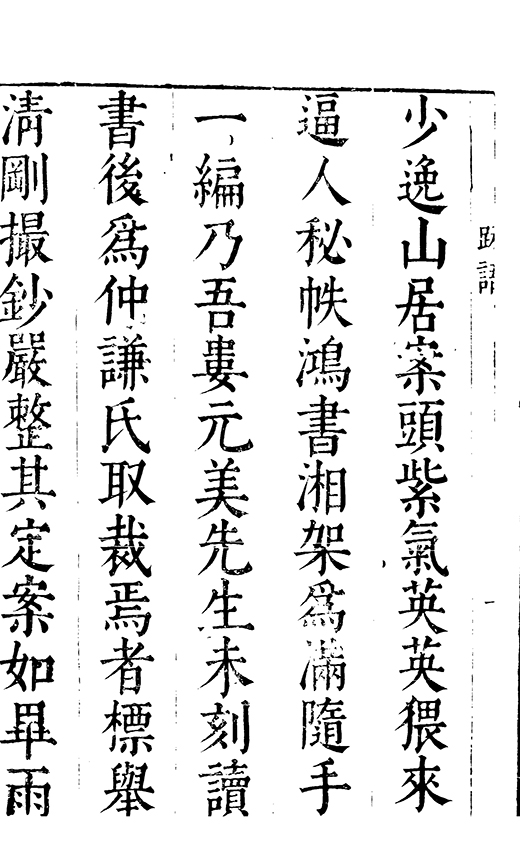 跋語
一
少逸山居案頭紫氣英英猥來
逼人秘帙鴻書湘架爲滿隨手
一編乃吾婁元美先生未刻讀
書後爲仲謙氏取裁焉者標舉
清剛撮鈔嚴整其定案如畢雨